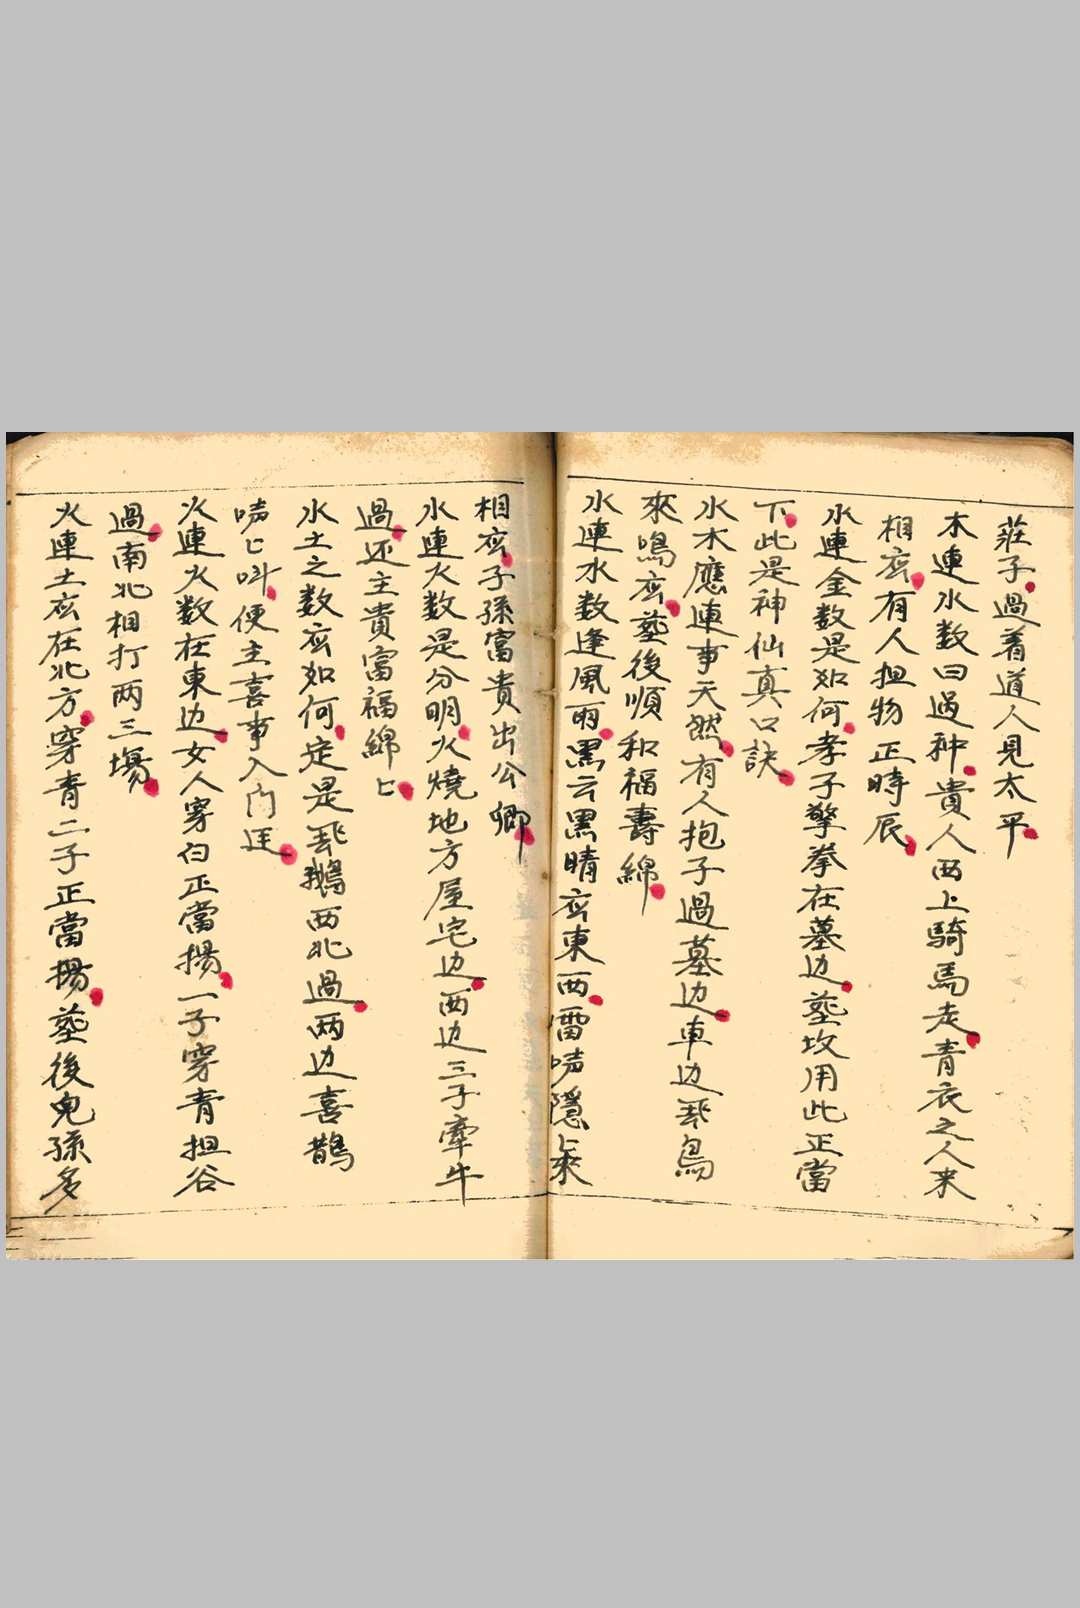 莊子過着道人見太平
木連水数曰過神貴人西上騎馬走青衣之人来
相应有人担物正時辰
水連金数是如何孝子擎拳在墓边塟坟用此正當
下此是神仙真口訣
水木應連事天然有人抱子過墓边車边飛鳥
來鳴应塟後順和福壽綿
水連水数逢風雨黑云黑晴应東西雷响隱上來
相应子孫富貴出公卿
水連火数是分明火燒地方屋宅边两边三子牽牛
過还主貴富福綿匕
水土之数应如何定是飛鵝西北過两边喜鵲
响匕叫便主喜事入门庭
火連火数在東边女人穿白正當揚一子穿青担谷
過南北相打两三塲
火連土应在北方穿青二子正當揚塟後児孫多